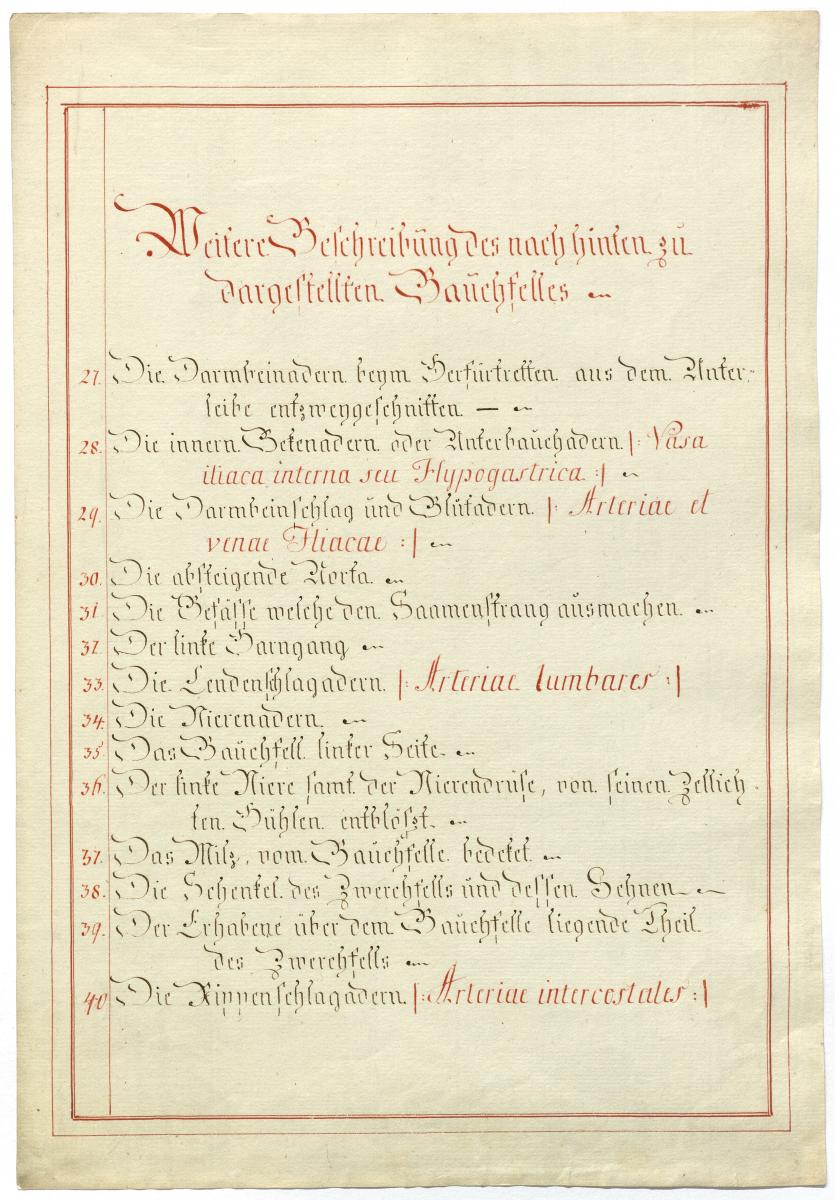 Weitere Beschreibüng des nach hinten zu
dargestellten Baüchfelles
27. Die Darmbeinadern beym Herfürtretten aus dem Unter-
leibe entzweygeschnitten —
28. Die innern Bekenadern oder Unterbauchadern |: Vasa
iliaca interna seu Hypogastrica :|
29. Die Darmbeinschlag ünd Blütadern |: Arteriae et
venae Iliacae :|
30. Die absteigende Aorta
31. Die Gefässe welche den Saamenstrang aüsmachen.
32. Der linke Harngang
33. Die Lendenschlagadern |: Arteriae lumbares :|
34. Die Nierenadern.
35. Das Baüchfell linker Seite
36. Der linke Niere samt der Nierendrüse, von seinen Zellich
ten Hühlen entblöszt
37. Das Milz, vom Baüchfelle bedeket
38. Die Schenkel des Zwerchfells ünd dessen Sehnen
39. Der Erhabene über dem Baüchfelle liegende Theil
des Zwerchfells
40 Die Rippenschlagadern |: Arteriae intercostales :|